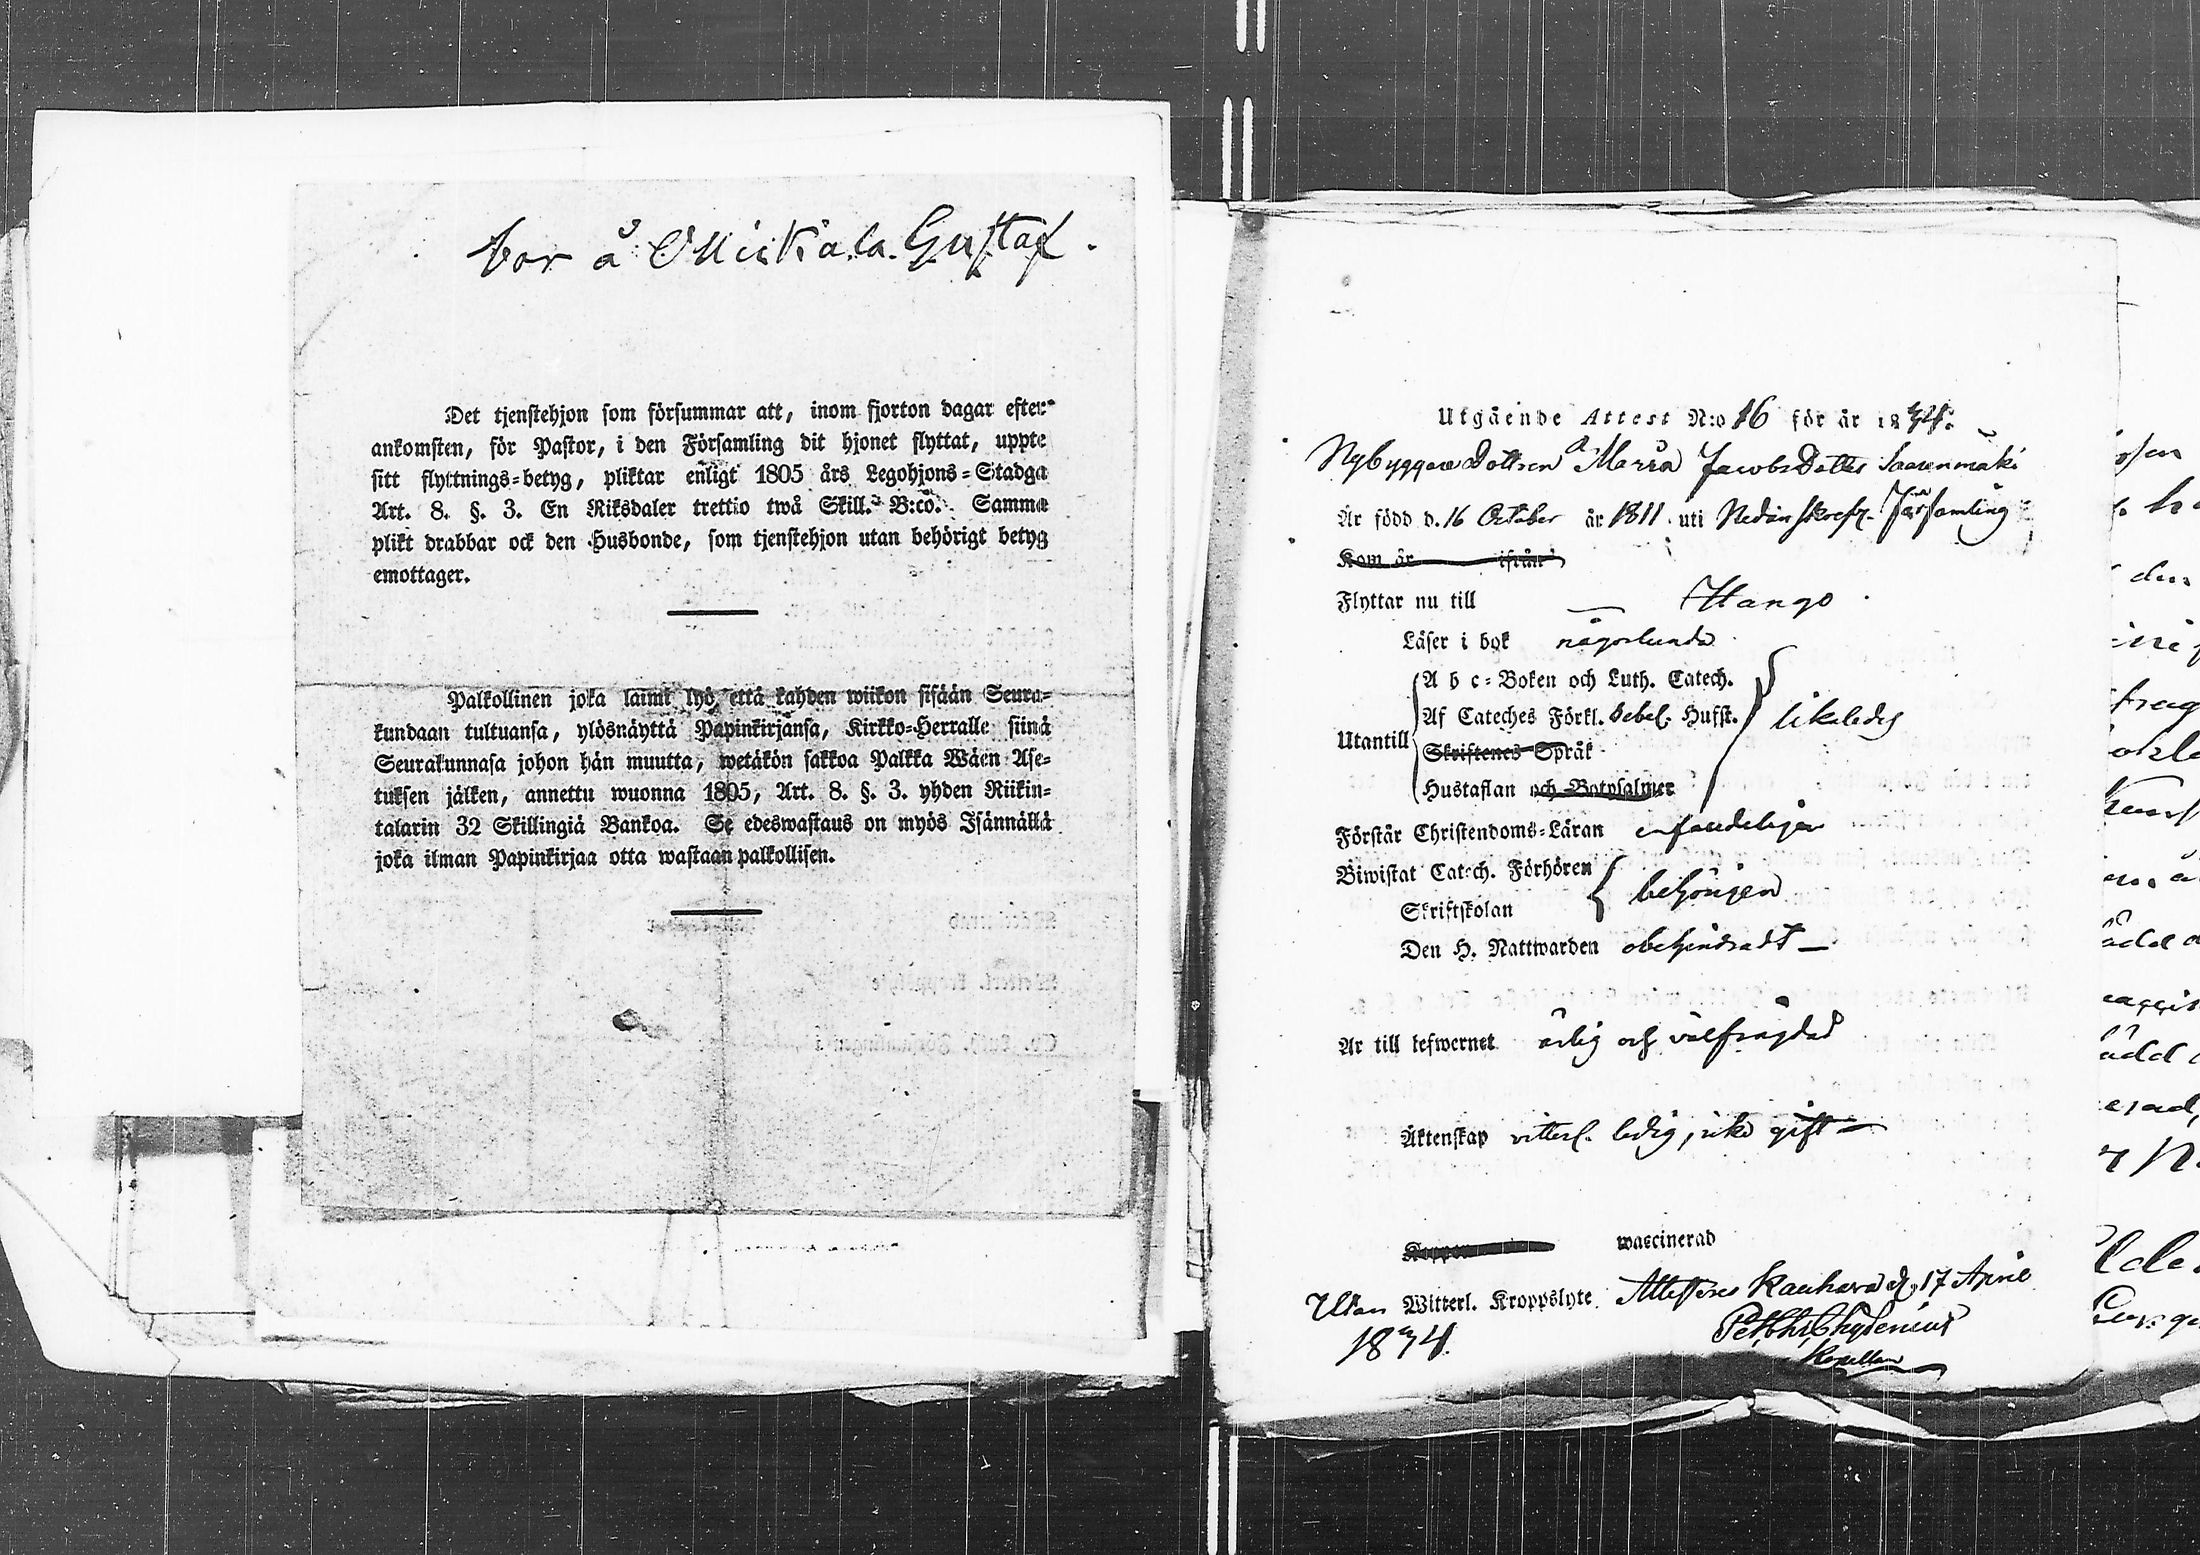 bor å Miskala Gustaf.
Det tjenstehjon som försummar att, inom fjorton dagar efter
ankomsten, för Pastor, i den Församling dit hjonet flyttat, uppte
sitt flyttnings=betyg, pliktar enligt 1805 års Legohjons=Stadga
Art. 8. §. 3. En Riksdaler trettio twå Skill. B:co. Samma
plikt drabbar ock den Husbonde, som tjenstehjon utan behörigt betyg
emottager.
Palkollinen joka laimi lyö, että kahden wiikon sisään Seura=
kundaan tultuansa, ylösnäyttä Papinkirjansa, Kirkko=Herralle siinä
Seurakunnasa johon hän muutta, wetäkön sakkoa Palkka Wäen Ase=
tuksen jälken, annettu wuonna 1805, Art. 8. §. 3. yhden Riikin=
talarin 32 Skillingiä Bankoa. Se edeswastaus on myös Isännällä
joka ilman Papinkirjaa otta wastaan palkollisen.
Utgående Attest N:o 16 för år 1834.
Nybyggare Dottren Maria Jacobs Dotter Saarenmäki
Är född d. 16 October år 1811 uti Nedanskrefz. Församling
Kom år ifrån
Flyttar nu till Hango
Läser i bok någorlunda
A b c=Boken och Luth. Catech.
Af Cateches Förkl. Hufst.
Utantill likaledes
Skriftenes Språk
Hustaflan och Botpsalmer
Förstår Christendoms=Läran enfaldeligen
Biwistat Catech. Förhören
behörigen
Skriftskolan
Den H. Nattwarden obehindradt
Är till lefwernet ärlig och välfrägdad
Äktenskap vitterl. ledig, icke gift
waccinerad
Utan Witterl. Kroppslyte. Attesteras Kauhava d. 17 April
1834. Chydenius
Kapellan